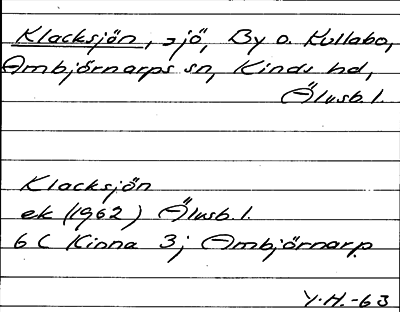 Klacksjön, sjö, By o. Kullabo,
Ambjörnarps sn, Kinds hd,
Älvsb. l.
Klacksjön
ek (1962) Älvsb. l.
6 C Kinna 3; Ambjörnarp
Y.H.-63